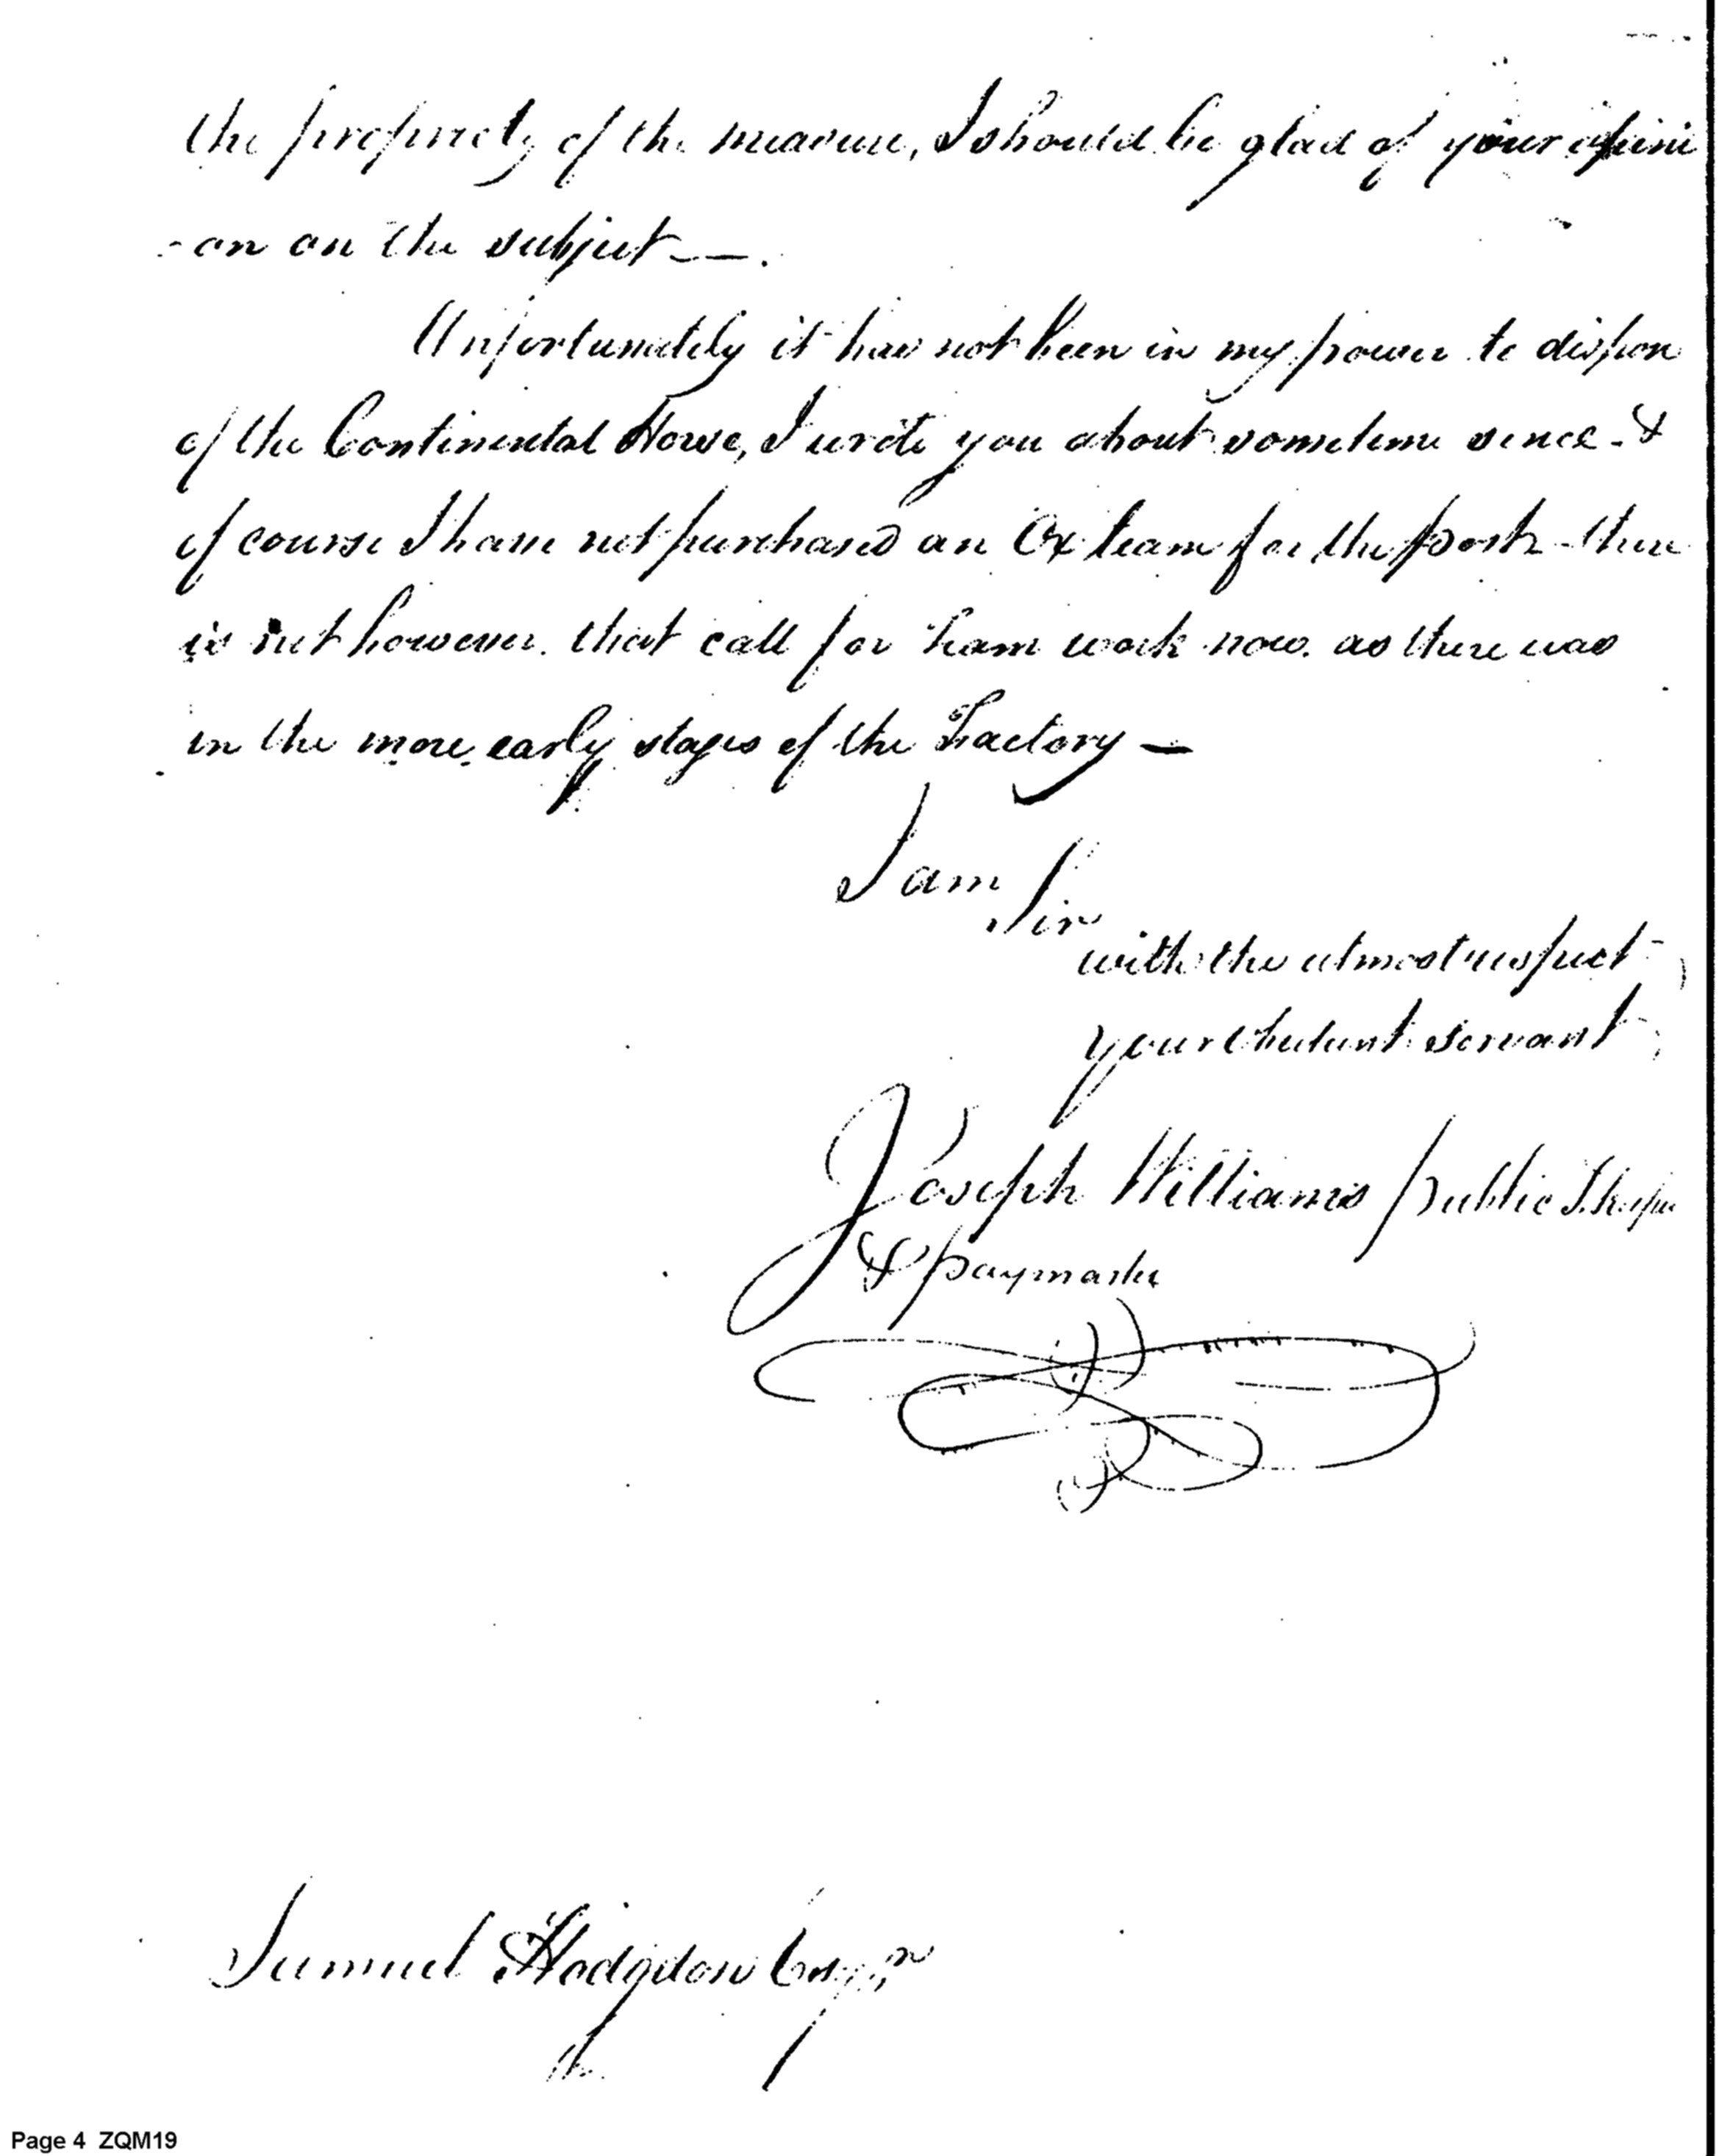 the propriety of the measure, I should be glad of your opini
-on on the subject - —.
Unfortunately it has not been in my power to dispose
of the Continental Horse, I wrote you about sometime since - &
of course I have not purchased an Ox team for the post - there
is not however. that call for team work now. as there was
in the more early stages of the Factory —
I am
Sir
with the utmost respect
your obedient servant
Joseph Williams public
& paymaster
Samuel Hodgdon Esqr
Page 4 ZQM19